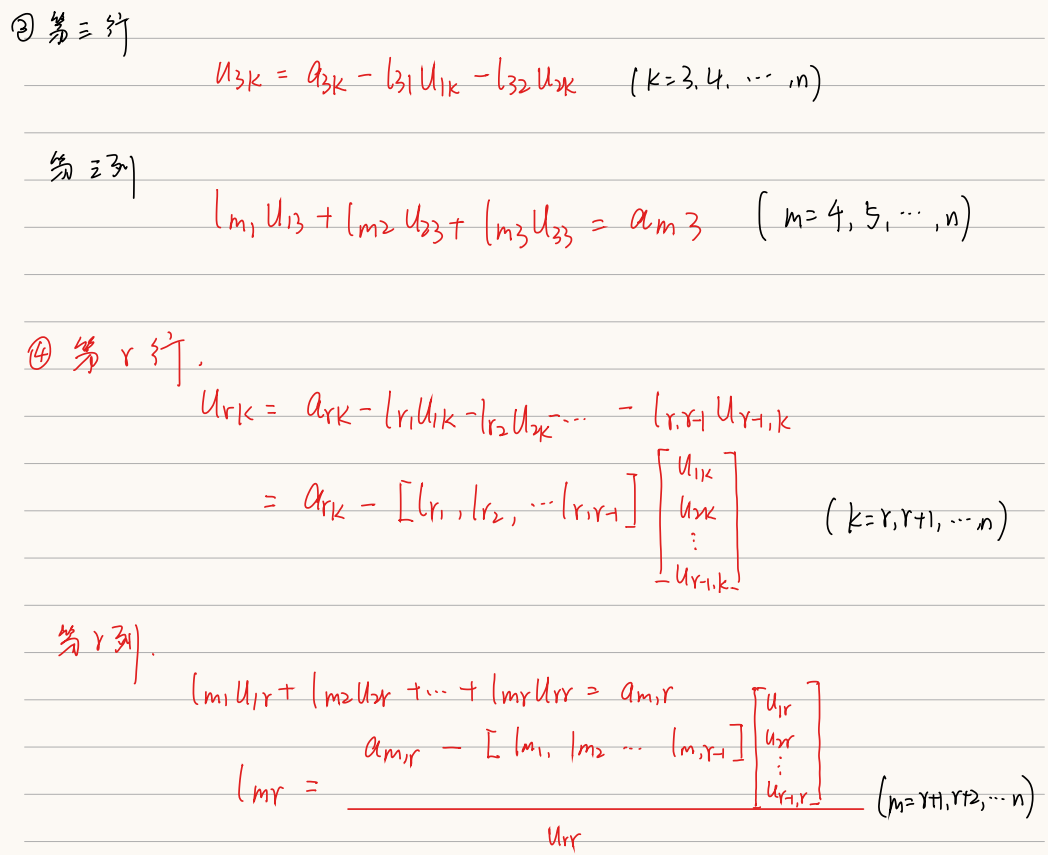 ③ 第三行
u_{3k} = a_{3k} - l_{31} u_{1k} - l_{32} u_{2k} (k=3,4,⋯,n)
第三列
l_{m1} u_{13} + l_{m2} u_{23} + l_{m3} u_{33} = a_{m3} (m=4,5,⋯,n)
④ 第 r 行.
u_{rk} = a_{rk} - l_{r1} u_{1k} - l_{r2} u_{2k} - ⋯ - l_{r,r-1} u_{r-1,k}
= a_{rk} - [l_{r1}, l_{r2}, ⋯ l_{r,r-1}] [u_{1k} u_{2k} ⋮ u_{r-1,k}] (k=r,r+1,⋯n)
第 r 列.
l_{m1} u_{1r} + l_{m2} u_{2r} + ⋯ + l_{mr} u_{rr} = a_{m,r}
l_{mr} = \frac{a_{m,r} - [l_{m1}, l_{m2} ⋯ l_{m,r-1}] [u_{1r} u_{2r} ⋮ u_{r-1,r}]}{u_{rr}} (m=r+1,r+2,⋯n)